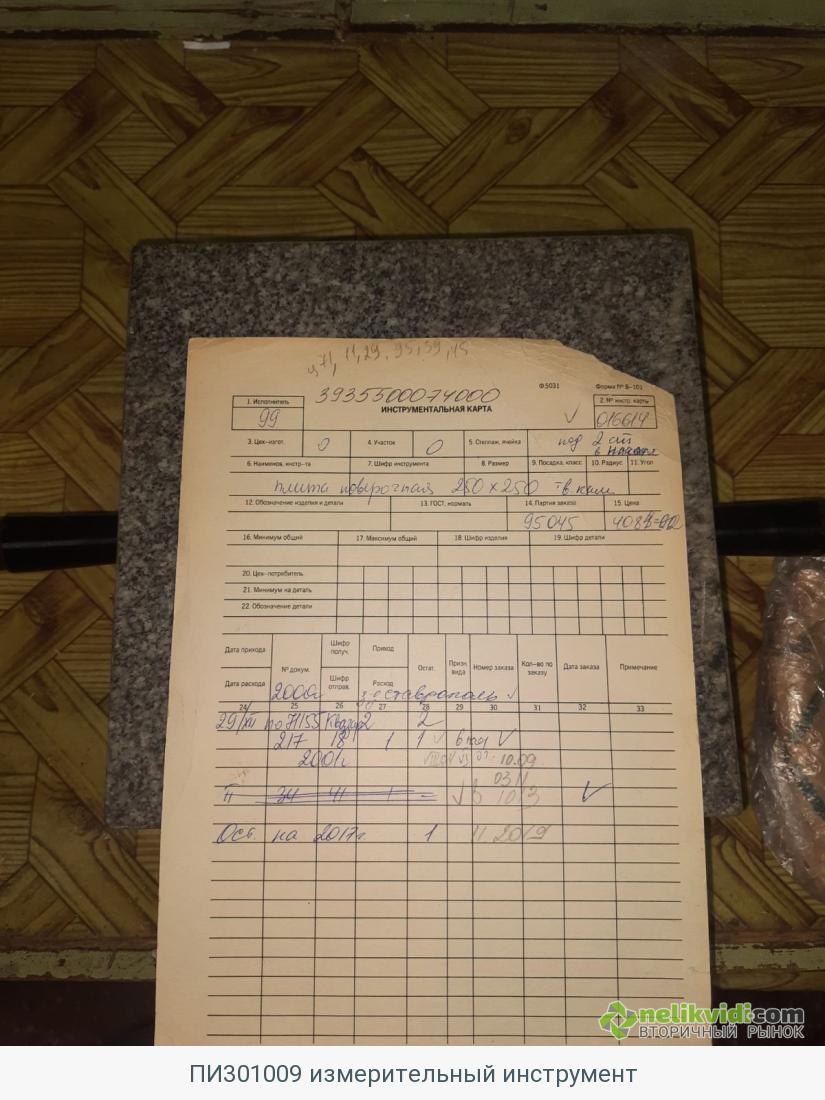 ч 71, 11, 29, 95, 59, 45
Ф.5031 Форма № Б-101
3935500074000
1. Исполнитель ИНСТРУМЕНТАЛЬНАЯ КАРТА 2. № инстр. карты
99 016614
3. Цех-изгот. 0 4. Участок 0 5. Стеллаж, ячейка под 2 сл
6. Наименов. инстр-та 7. Шифр инструмента 8. Размер 9. Посадка, класс 10. Радиус 11. Угол
плита поверочная 250 х 250 тв. кам.
12. Обозначение изделия и детали 13. ГОСТ, нормаль 14. Партия заказа 15. Цена
95045
16. Минимум общий 17. Максимум общий 18. Шифр изделия 19. Шифр детали
20. Цех-потребитель
21. Минимум на деталь
22. Обозначение детали
Дата прихода № докум. Шифр получ. Приход Остат. Призн. вида Номер заказа Кол-во по заказу Дата заказа Примечание
Дата расхода Шифр отправ. Расход
2000г з-д Ставрополь
24 25 26 27 28 29 30 31 32 33
29/XII по 71155 Квазар 2 2
217 18 1 1
2001г 10.09
03.11
II 34 41 1 –
Ост. на 2017г. 1 11 2019
nelikvidi.com
ВТОРИЧНЫЙ РЫНОК
ПИ301009 измерительный инструмент